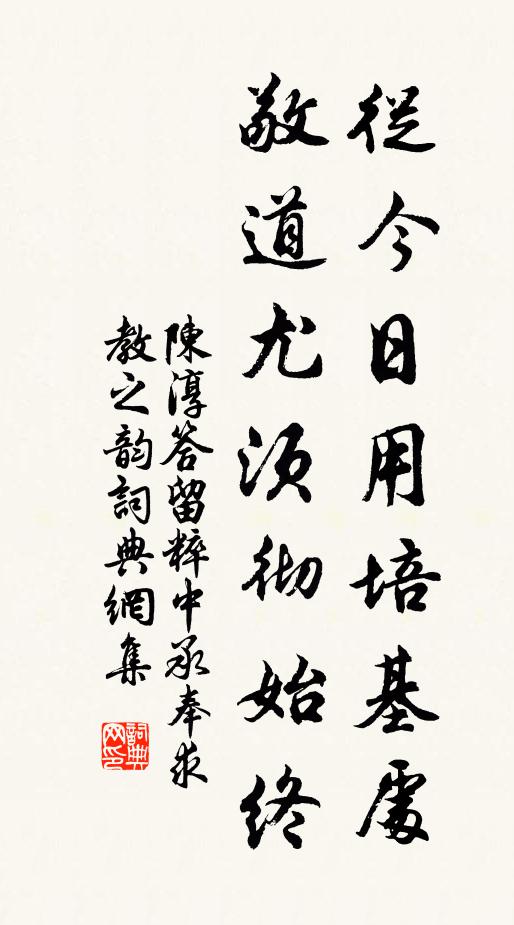 從今日用培基處
敬道尤須徹始終
陳淳答留粹中承奉求
教之韵詞典網集
詞典网印